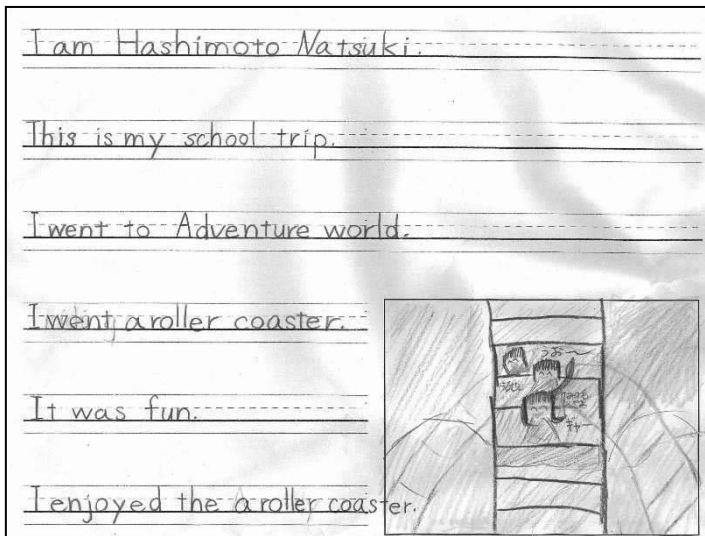 I am Hashimoto Natsuki.
This is my school trip.
I went to Adventure world.
I went a roller coaster.
It was fun.
I enjoyed the a roller coaster.
うお〜
キャー